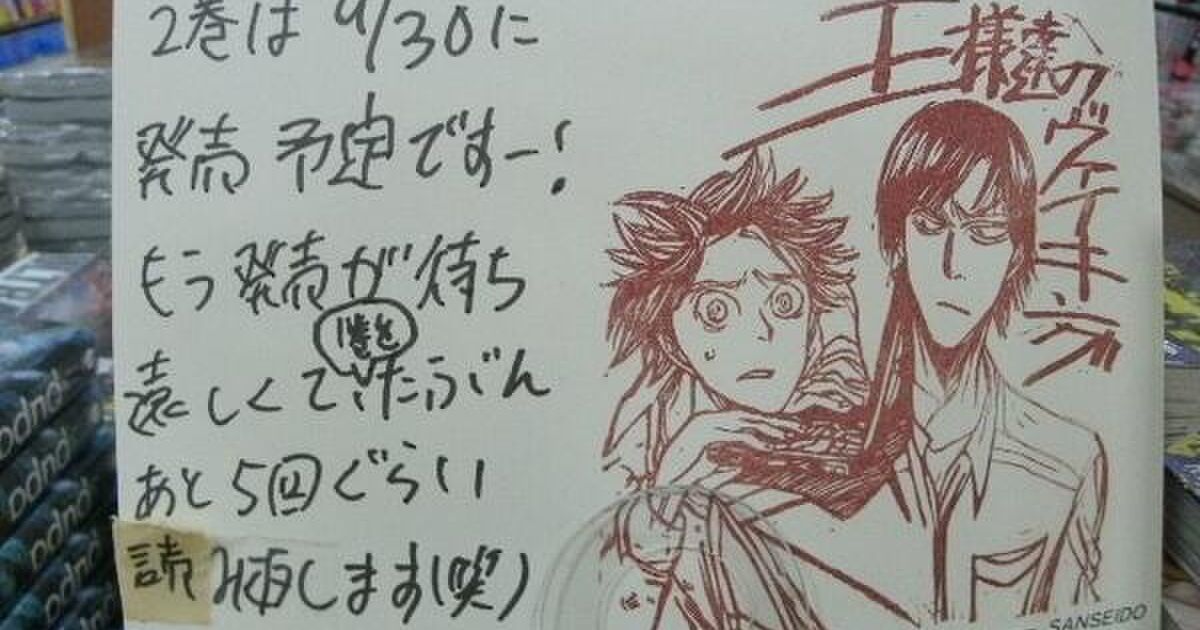 2巻は 9/30に
発売 予定ですー!
もう発売が待ち
遠しくて1巻をたぶん
あと5回ぐらい
読み直しします(笑)
王様達のヴァイキング
SANSEIDO
pdnd
pdnd
pdnd